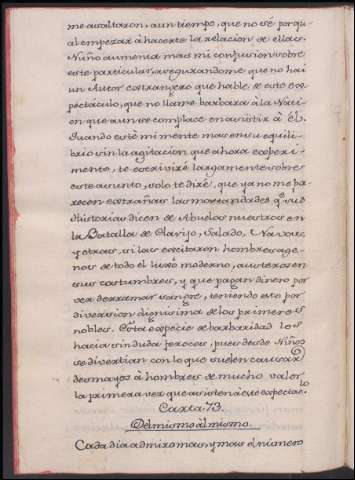 me asaltaron, a un tiempo, que no sè por qu-
al empezar à hacerte la relacion de ellas.
Nuño aumenta mas mi confusion sobre
este particular, asegurandome que no hai
un Autor extrangero que hable de este es-
pectáculo, que no llame barbara à la Naci-
on que aun se complace en asistir à èl.
Quando estè mi mente mas en su equili-
brio sin la agitacion que ahora experi-
mento, te escrivirè largamente sobre
este asunto, solo te dirè, que ya no me pa-
recen extrañas las mortandades qe. sus
Historias dicen de Abuelos nuestros en
la Batalla de Clavijo, Salado, Navas,
y otras, si las excitaron hombres age-
nos de todo el luxo moderno, austeros en
sus costumbres, y que pagan dinero por
ver derramar sangre, teniendo esto por
diversion dignisima de los primeros
nobles. Esta especie de barbaridad los
hacia sin duda feroces, pues desde Niños
se divertian con lo que suelen causar
desmayos à hombres de mucho valor
la primera vez que asisten à este espectaclo.
Carta 73.
Del mismo al mismo.
Cada dia admiro mas y mas el número